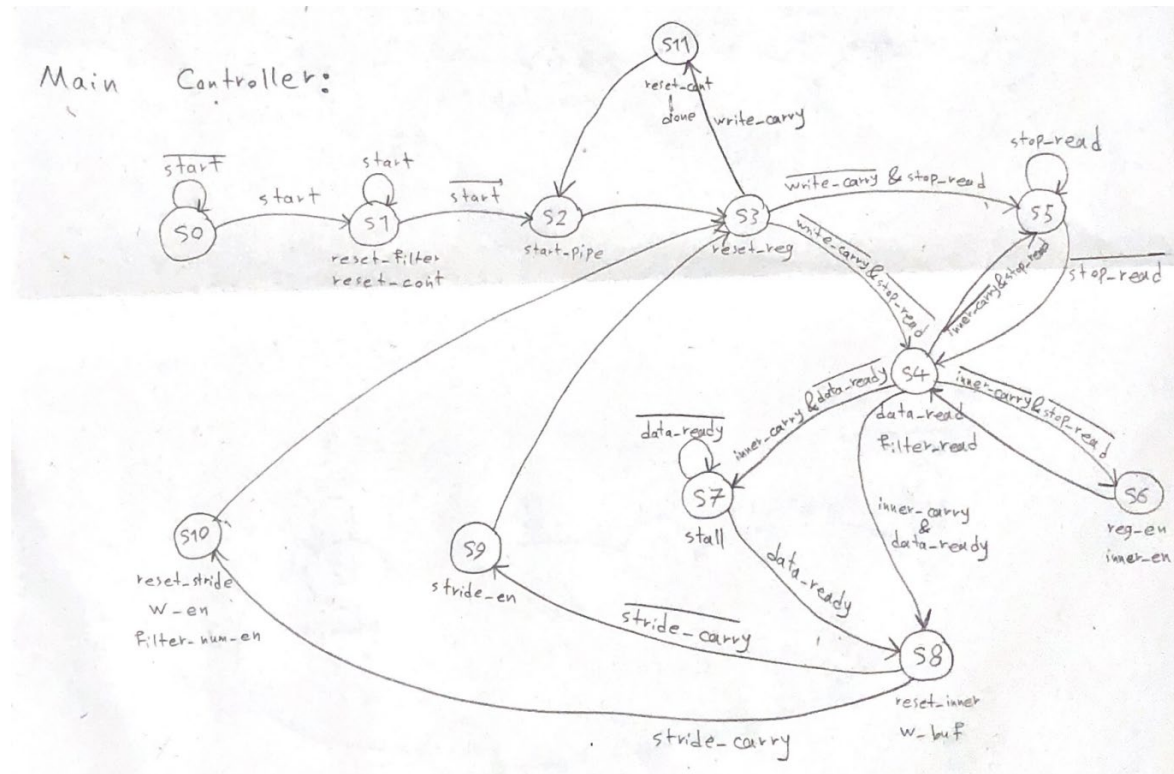 Main Controller:
S11
reset_cont
done
write_carry
start̅
S0
start
start
S1
reset_filter
reset_cont
start̅
S2
start_pipe
S3
reset_reg
w̅r̅i̅t̅e̅_̅c̅a̅r̅r̅y̅ & stop_read
stop_read
S5
s̅t̅o̅p̅_̅r̅e̅a̅d̅
w̅r̅i̅t̅e̅_̅c̅a̅r̅r̅y̅&s̅t̅o̅p̅_̅r̅e̅a̅d̅
i̅n̅n̅e̅r̅_̅c̅a̅r̅r̅y̅&stop_read
S4
data_read
filter_read
i̅n̅n̅e̅r̅_̅c̅a̅r̅r̅y̅&s̅t̅o̅p̅_̅r̅e̅a̅d̅
S6
reg_en
inner_en
inner_carry &d̅a̅t̅a̅_̅r̅e̅a̅d̅y̅
d̅a̅t̅a̅_̅r̅e̅a̅d̅y̅
S7
stall
inner_carry
&
data_ready
data_ready
S10
reset_stride
w_en
filter_num_en
S9
stride_en
s̅t̅r̅i̅d̅e̅_̅c̅a̅r̅r̅y̅
S8
reset_inner
w_buf
stride_carry